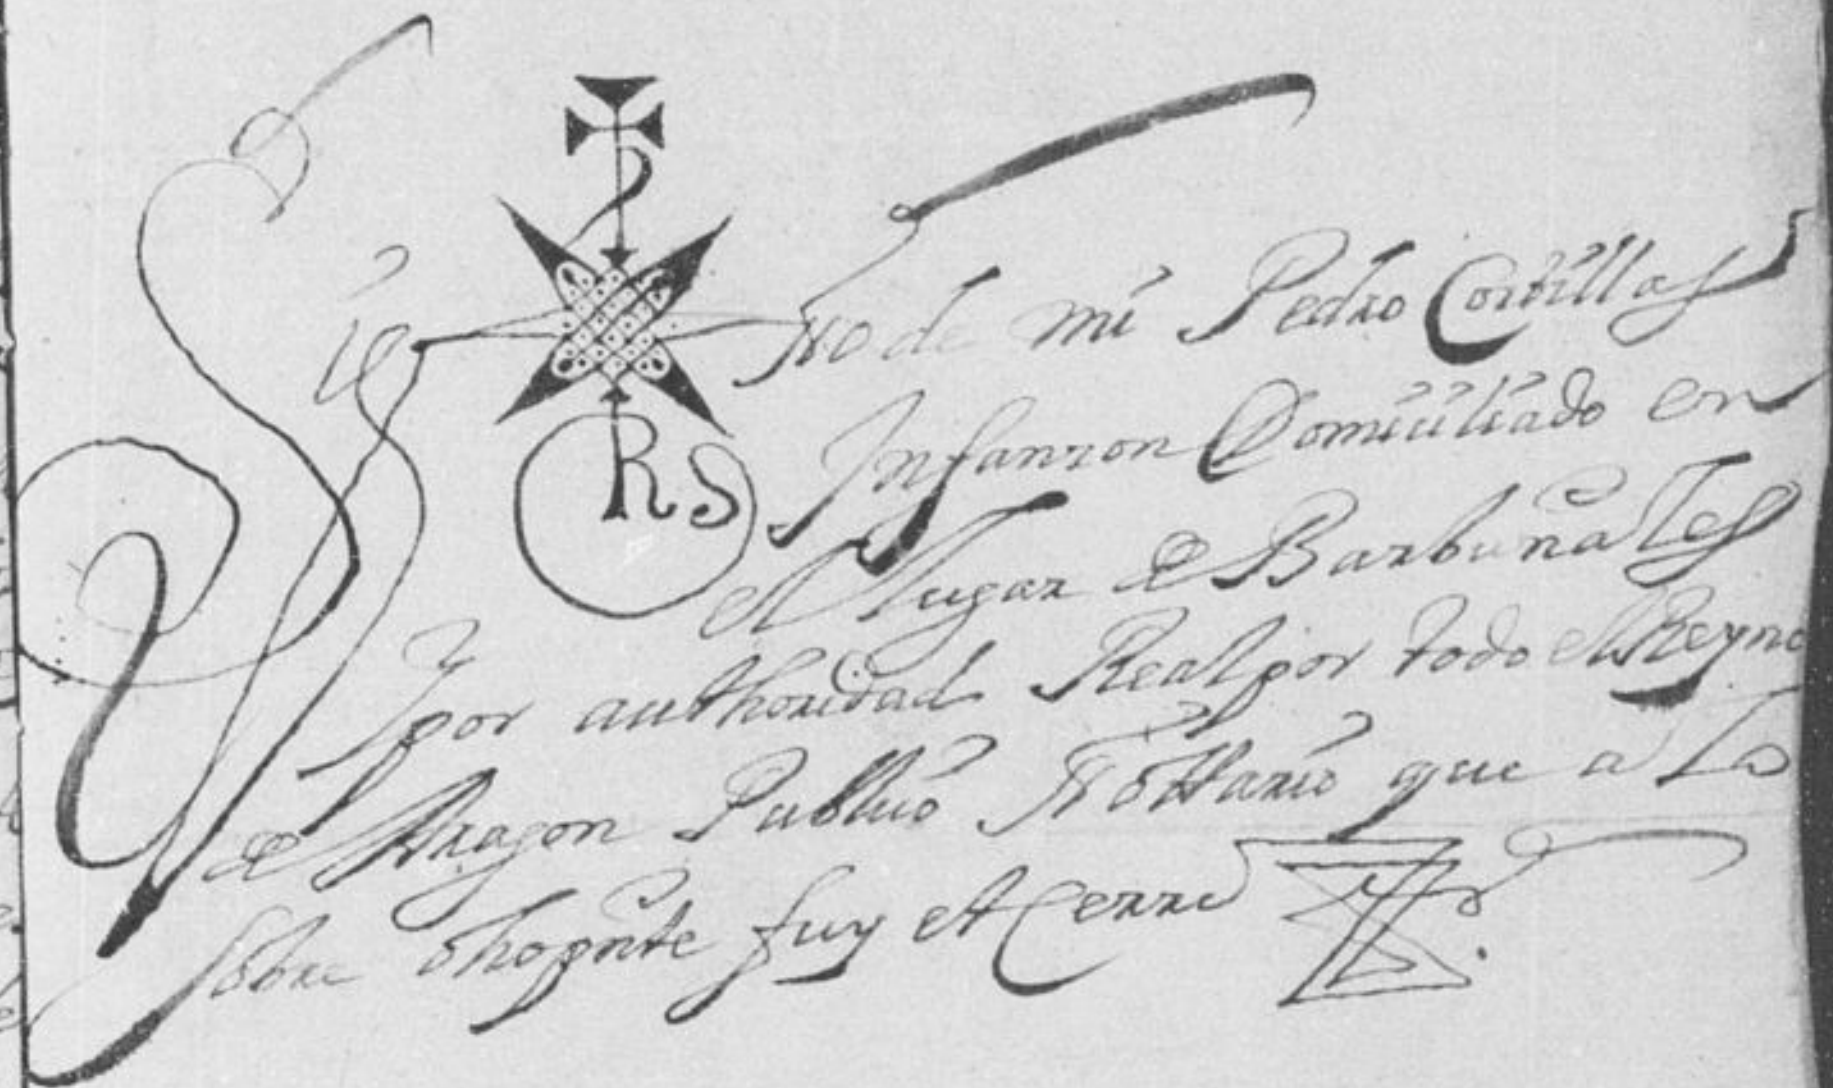 Sig no de mi Pedro Costillas
RS
Infanzon Domiciliado en
el lugar de Barbuñales
y por authoridad Real por todo el Reyno
de Aragon Publico Nottario que a lo
sobre dho pnte fuy et Cerre